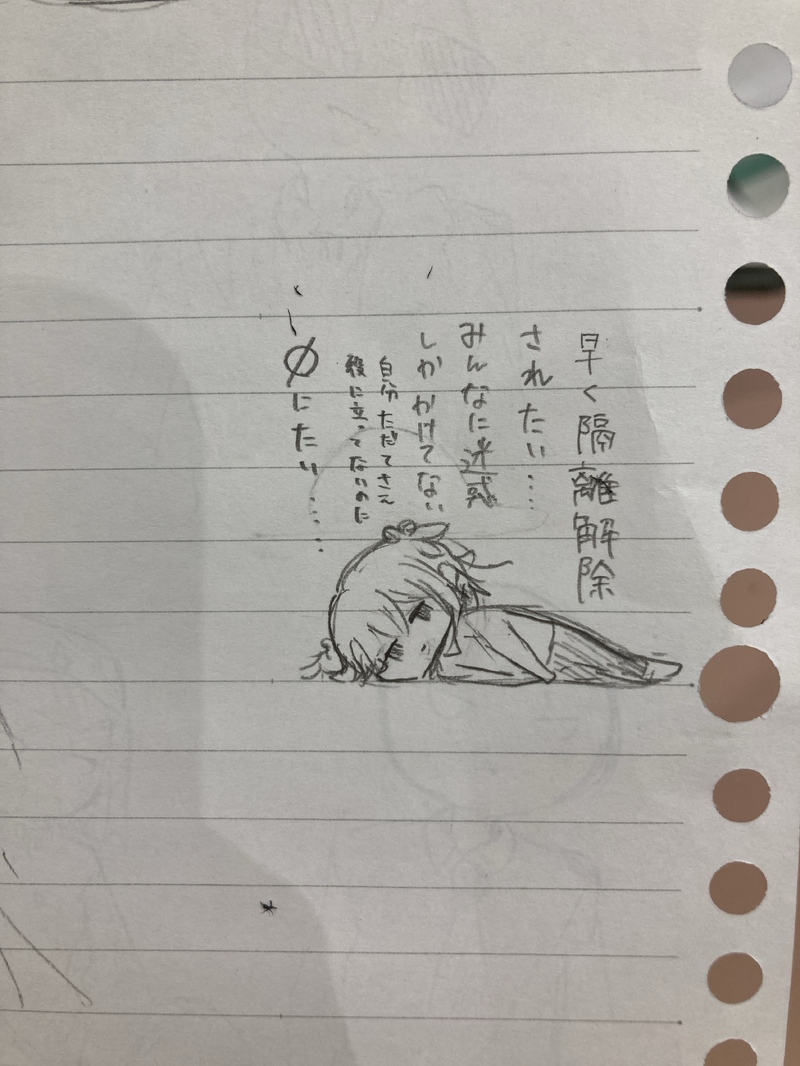 早く隔離解除
されたい…
みんなに迷惑
しかかけてない
自分ただでさえ
役に立ってないのに
〆にたい……